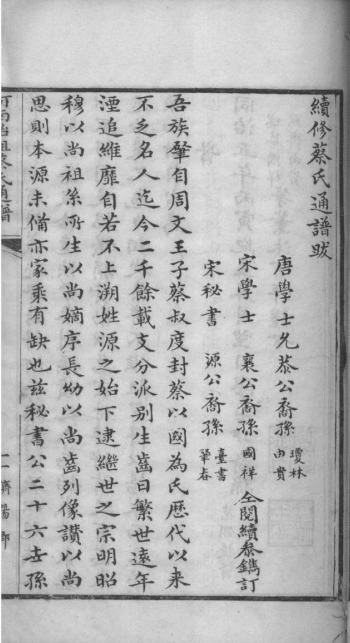 續修蔡氏通譜跋
唐學士允恭公裔孫 瓊林 由貴
宋學士 襄公裔孫 國祥 仝閱續參鐫訂
宋秘書 源公裔孫 臺書 肇春
吾族肇自周文王子蔡叔度封蔡以國為氏歷代以來
不乏名人迄今二千餘載支分派別生齒日繁世遠年
湮追維靡自若不上溯姓源之始下逮繼世之宗明昭
穆以尚祖系所生以尚嫡序長幼以尚齒列像讚以尚
思則本源未備亦家乘有缺也茲秘書公二十六世孫
濟陽郡